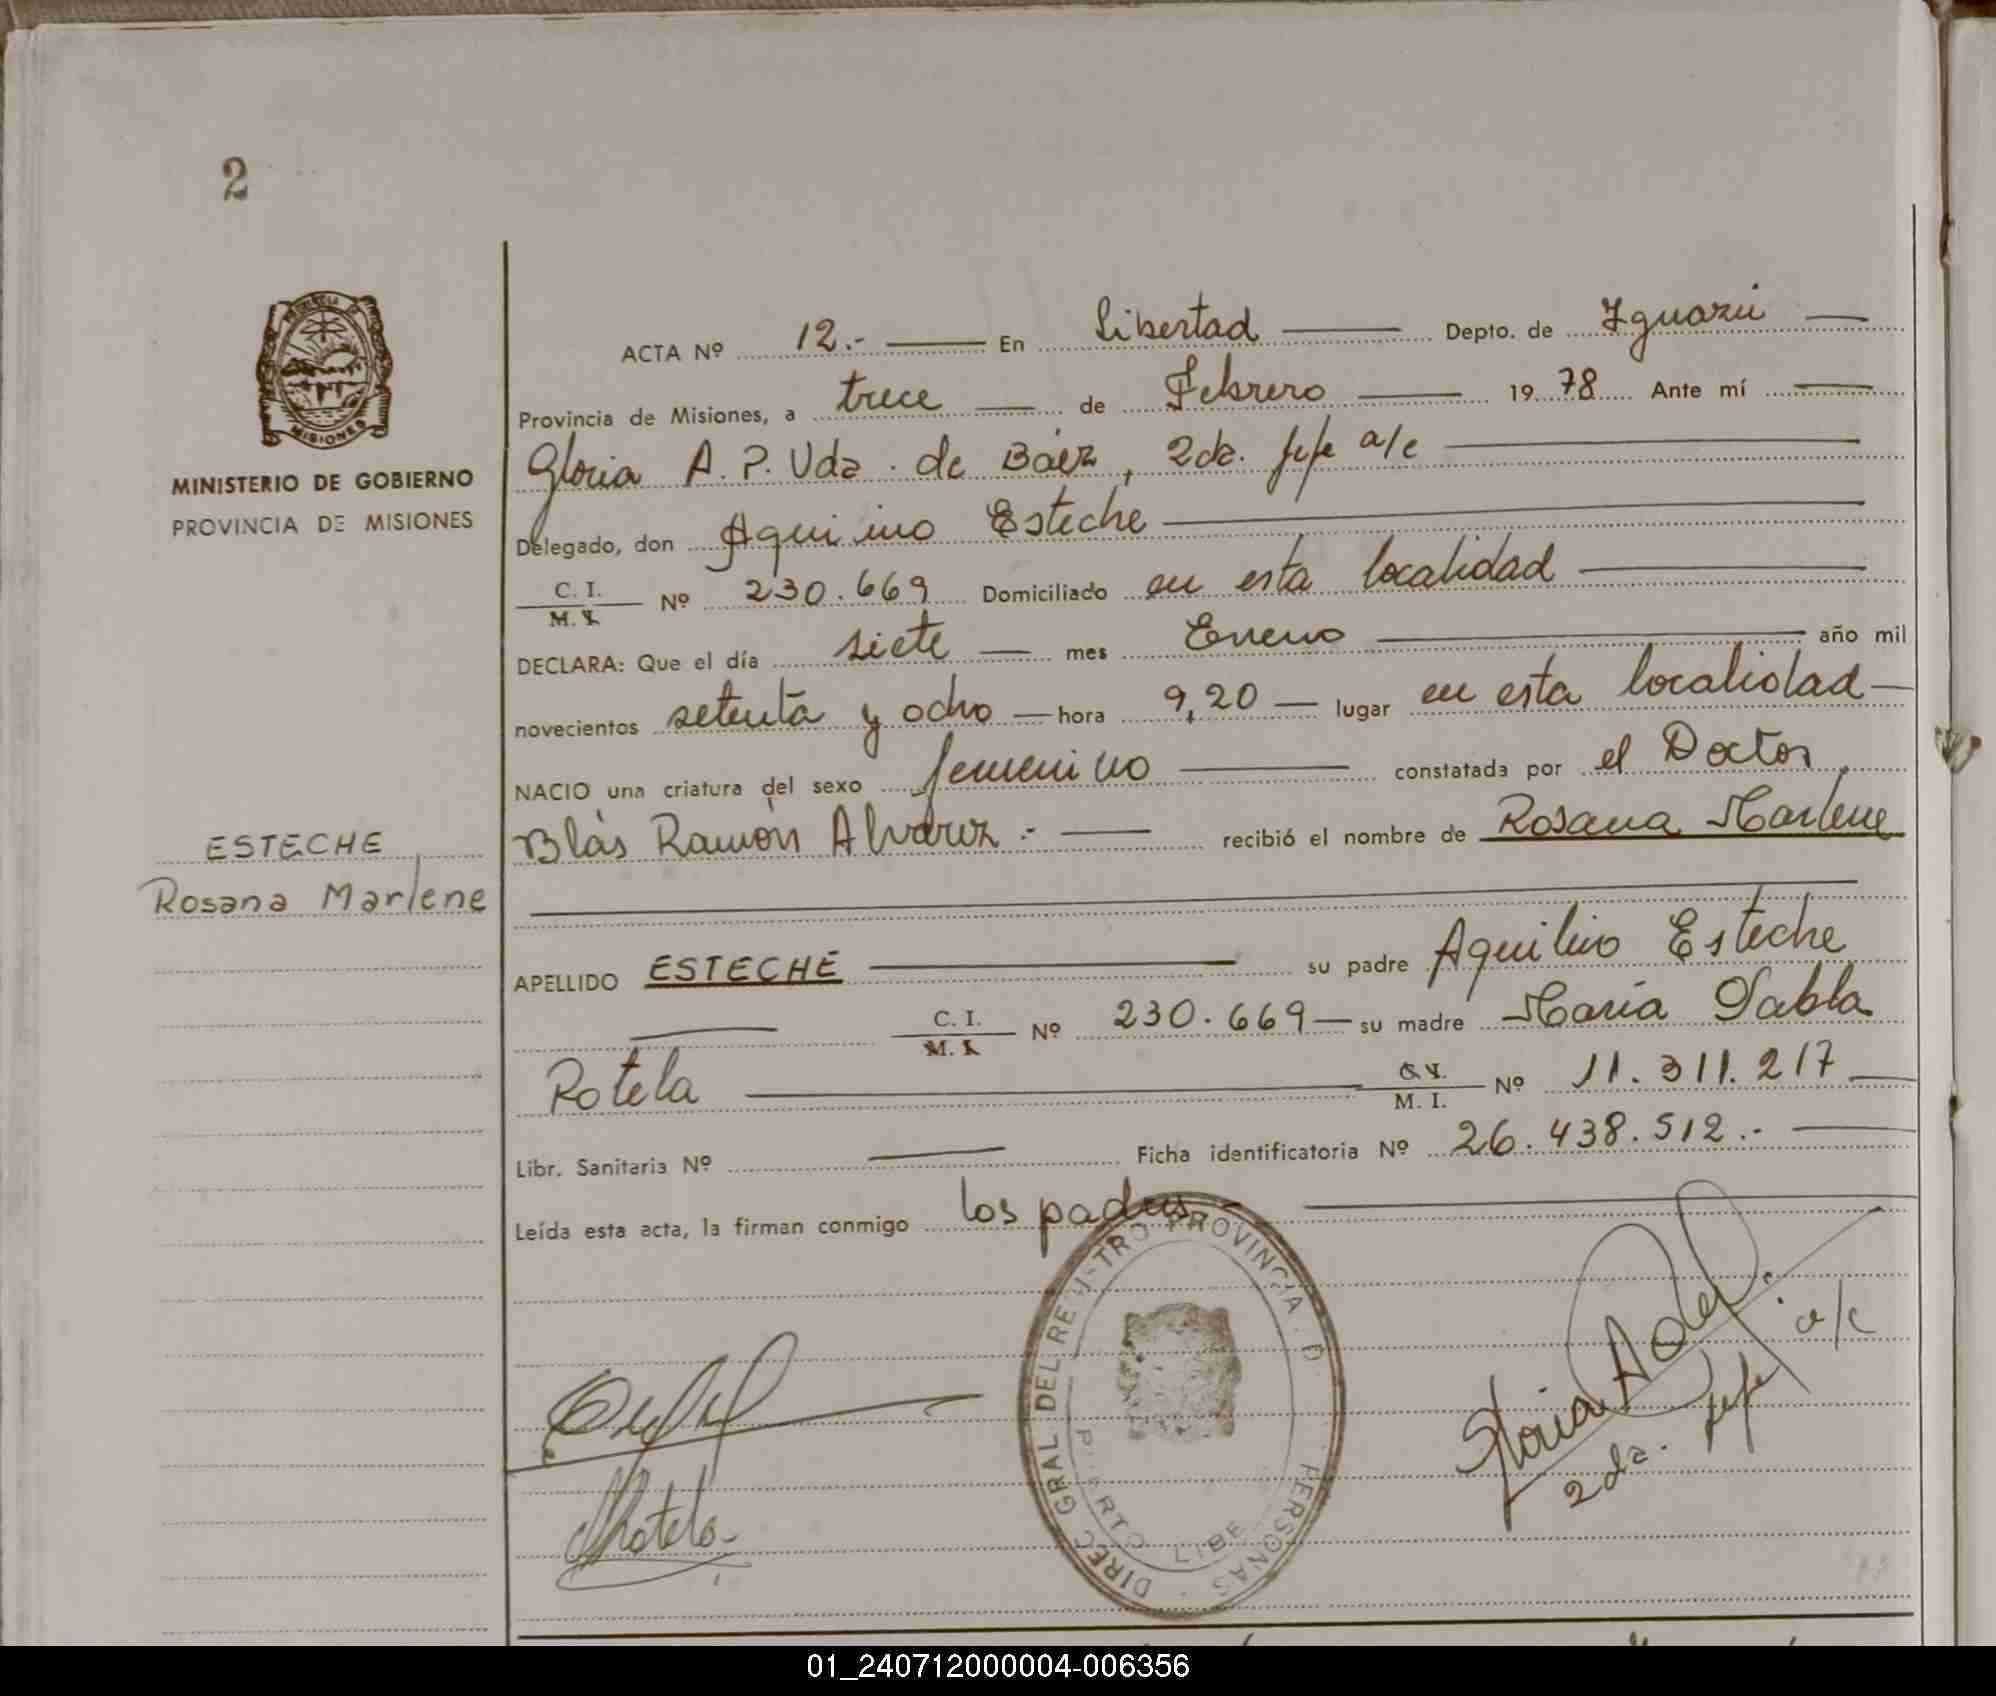 2
MISIONES
MINISTERIO DE GOBIERNO
PROVINCIA DE MISIONES
ESTECHE
Rosana Marlene
ACTA Nº 12.- En Libertad Depto. de Iguazú
Provincia de Misiones, a trece de Febrero 1978 Ante mí
Gloria A. P. Vda. de Báez, 2da. jefe a/c
Delegado, don Aquilino Esteche
C. I. M. I. Nº 230.669 Domiciliado en esta localidad
DECLARA: Que el día siete mes Enero año mil
novecientos setenta y ocho hora 9,20 lugar en esta localidad
NACIO una criatura del sexo femenino constatada por el Doctor
Blás Ramón Alvarez.- recibió el nombre de Rosana Marlene
APELLIDO ESTECHE su padre Aquilino Esteche
C. I. M. I. Nº 230.669 su madre María
Rotela C. I. M. I. Nº 11.311.217
Libr. Sanitaria Nº Ficha identificatoria Nº 26.438.512.-
Leída esta acta, la firman conmigo los padres
DIREC GRAL DEL REGISTRO PROVINCIA D PERSONAS
PUERTO LIBE
Rotela
Gloria A
2da. jefe a/c
01_240712000004-006356